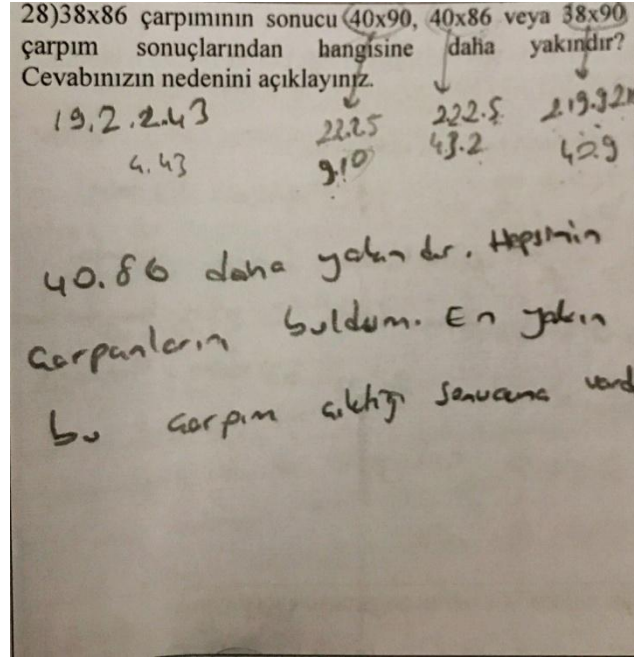 28)38x86 çarpımının sonucu 40x90, 40x86 veya 38x90
çarpım sonuçlarından hangisine daha yakındır?
Cevabınızın nedenini açıklayınız.
19.2.2.43 22.25 222.5
4.43 9.10 43.2 40.9
40.86 daha yakındır. Hepsinin
çarpanlarını buldum. En yakın
bu çarpım çıktığı sonucuna vard